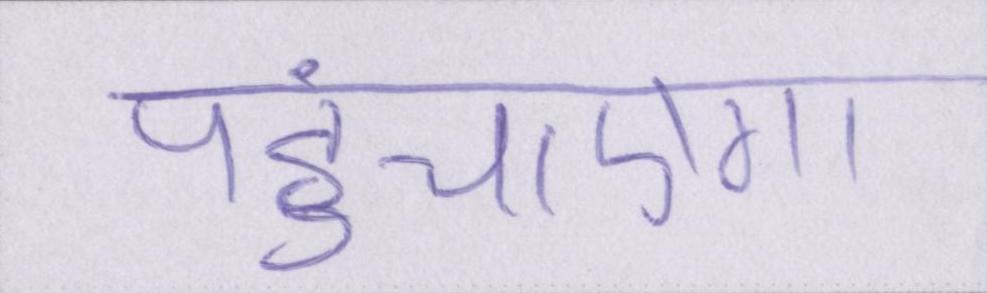 पहुंचाएगा